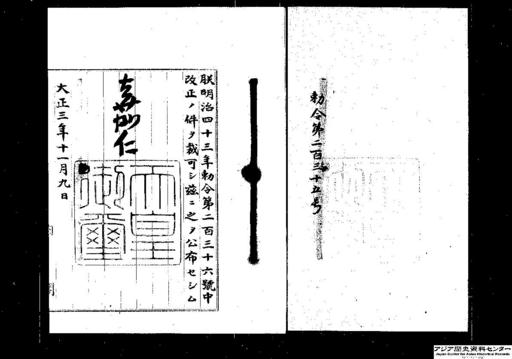 勅令第二百三十五号
朕明治四十三年勅令第二百三十六號中
改正ノ件ヲ裁可シ茲ニ之ヲ公布セシム
嘉仁
天皇御璽
大正三年十一月九日
アジア歴史資料センター
Japan Center for Asian Historical Records